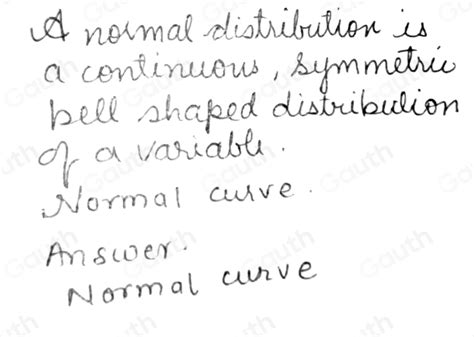 A normal distribution is
a continuous, symmetric
bell shaped distribution
of a variable.
Normal curve.
Answer.
Normal curve